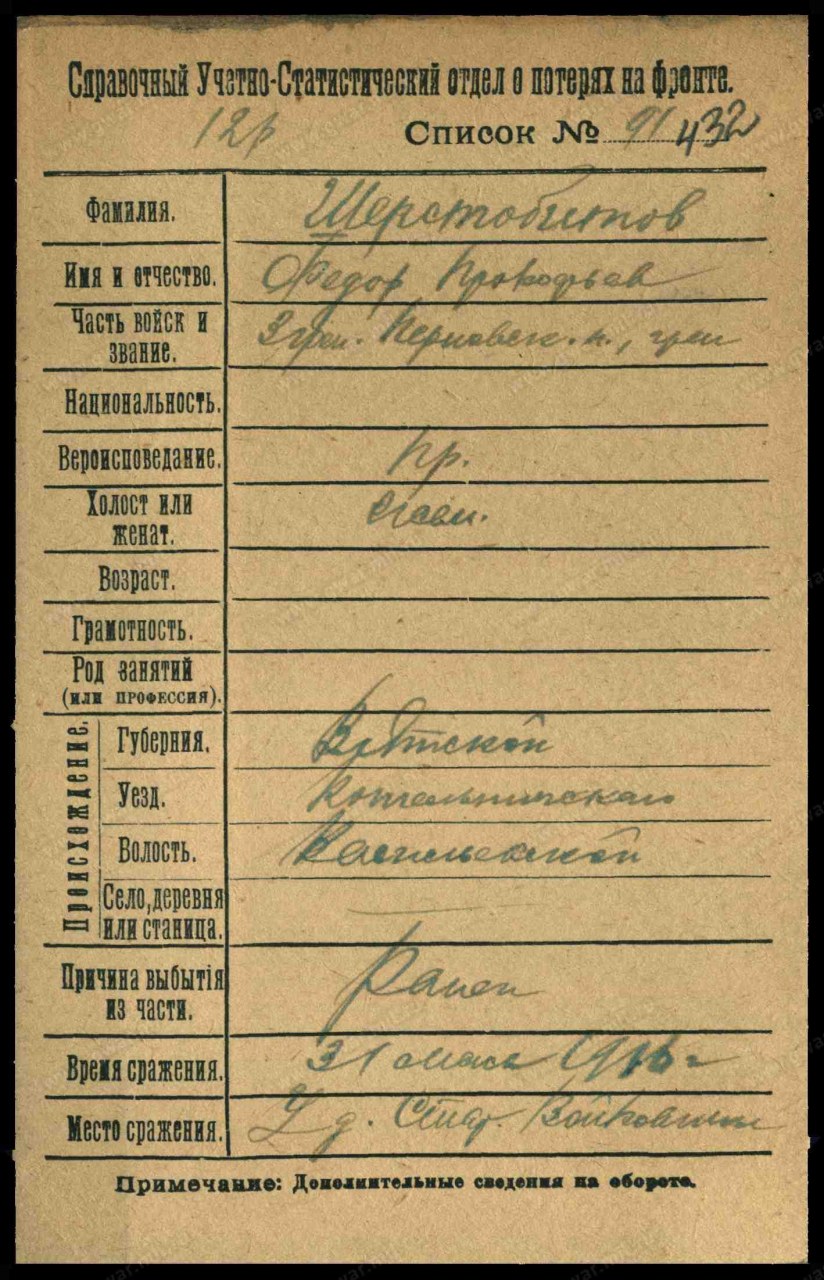 Справочный Учетно-Статистический отдел о потерях на фронте.
12р Список № 91432
Фамилия. Шерстобитов
Имя и отчество. Федор Прокофьев
Часть войск и
звание. 3 грен. Перновск. п., грен
Национальность.
Вероисповедание. пр.
Холост или
женат.
Возраст.
Грамотность.
Род занятий
(или профессия).
Происхождение.
Губерния. Вятской
Уезд. Котельническаго
Волость. Васильевской
Село, деревня
или станица. —
Причина выбытія
из части. Ранен
Время сражения. 31 мая 1916 г
Место сражения. У д. Стар.
Примечание: Дополнительные сведения на обороте.